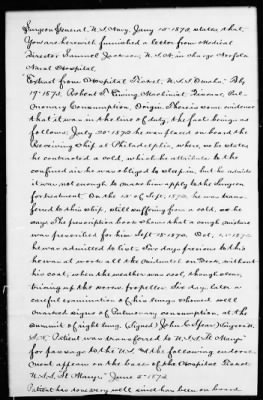 Surgeon General, U.S. Navy, Jany 10" 1873, states that,
"You are herewith furnished a letter from Medical
Director Samuel Jackson, U.S.N. in charge Norfolk
Naval Hospital.
"Extract from Hospital Ticket, U.S.S. Omaha" Feby
19" 1872, Robert Machinist, Disease, Pul-
monary Consumption. Origin. There is some evidence
that it was in the line of duty, the facts being as
follows; July 20" 1870 he was placed on board the
Receiving Ship at Philadelphia, where, as he states
he contracted a cold, which he attributes to the
confined air he was obliged to sleep in, but he admits
it was not enough to make him apply to the Surgeon
for treatment. On the 15" of Sept. 1870, he was trans-
ferred to this ship, still suffering from a cold, as he
says. The prescription book shows that a cough mixture
was prescribed for him Sept 18" 1870. Oct. 1870
he was admitted to list. Six days previous to this
he was at work all the on Deck, without
his coat, when the weather was cool, though sunny,
the screw propeller. Six days later a
careful examination of his lungs showed well
marked signs of Pulmonary consumption, at the
summit of right lung. (Signed) John C. Spear, Surgeon U.
S.N." Patient was transferred to U.S.S. "St. Mary's"
for passage to the U.S. "& the following endorse-
ment appears on the back of the Hospital Ticket
U.S.S. St. Mary's" June 5" 1872
Patient has done very well since has been on board